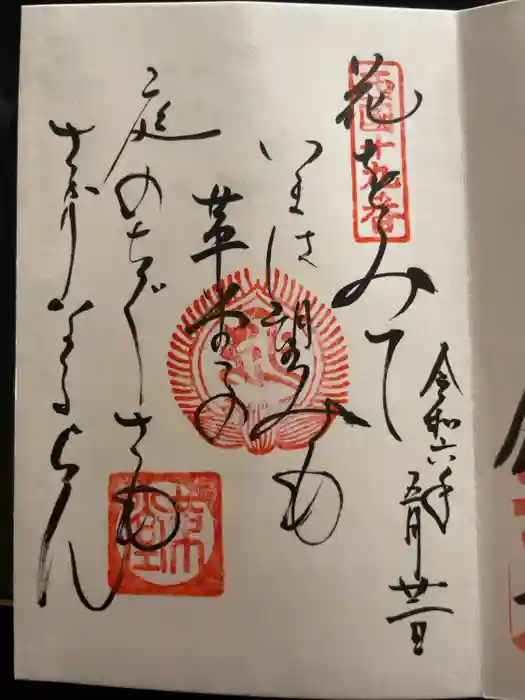 西国十九番
花をみて
いまは望みも
革堂の
庭のちぐさも
さかりなるらん
令和六年五月廿二日
革堂